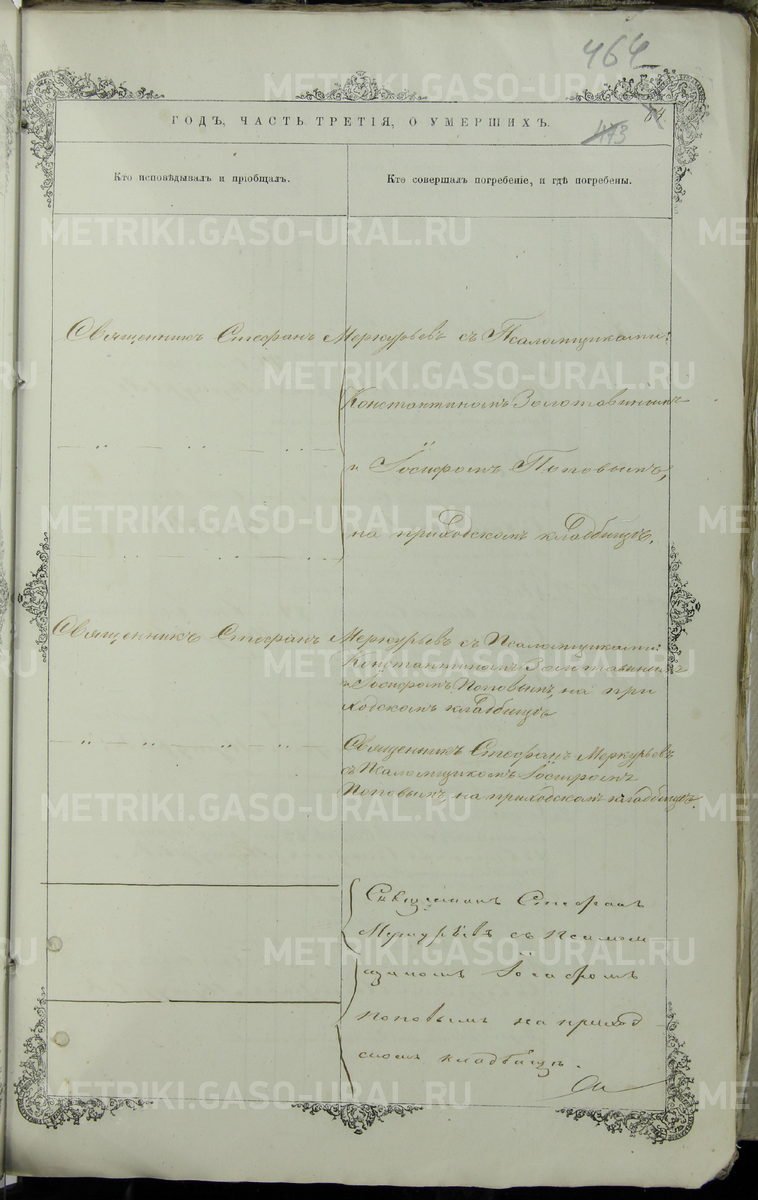 464
84.
473
ГОДЪ, ЧАСТЬ ТРЕТІЯ, О УМЕРШИХЪ.
Кто исповѣдывалъ и пріобщалъ.
Кто совершалъ погребеніе, и гдѣ погребены.
Священникъ Стефанъ Меркурьевъ съ Псаломщиками:
Константиномъ Золотавинымъ
и Іосифомъ Поповымъ,
на приходскомъ кладбищѣ.
Священникъ Стефанъ Меркурьевъ съ Псаломщиками:
Константиномъ Золотавинымъ
и Іосифомъ Поповымъ, на при
ходскомъ кладбищѣ
Священникъ Стефанъ Меркурьевъ
съ Псаломщикомъ Іосифомъ
Поповымъ, на приходскомъ кладбищѣ.
Священникъ Стефанъ
Меркурьевъ съ Псалом
щикомъ Іосифомъ
Поповымъ на приход
скомъ кладбищѣ.
METRIKI.GASO-URAL.RU